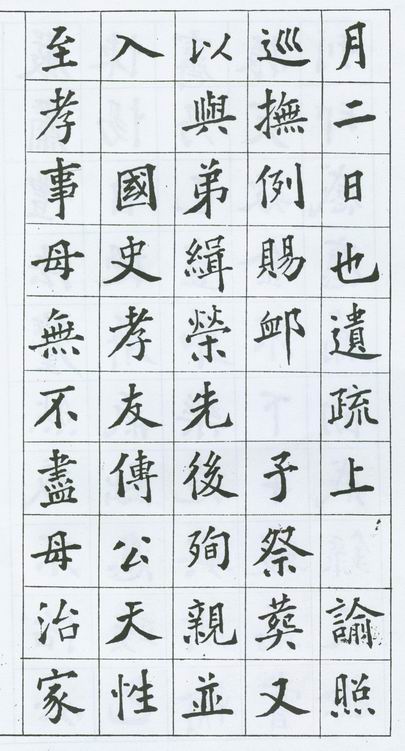 月二日也遺疏上 諭照
巡撫例賜卹 予祭葬又
以 與弟緝榮先後殉親並
入 國史孝友傳公天性
至孝事母無不盡母治家